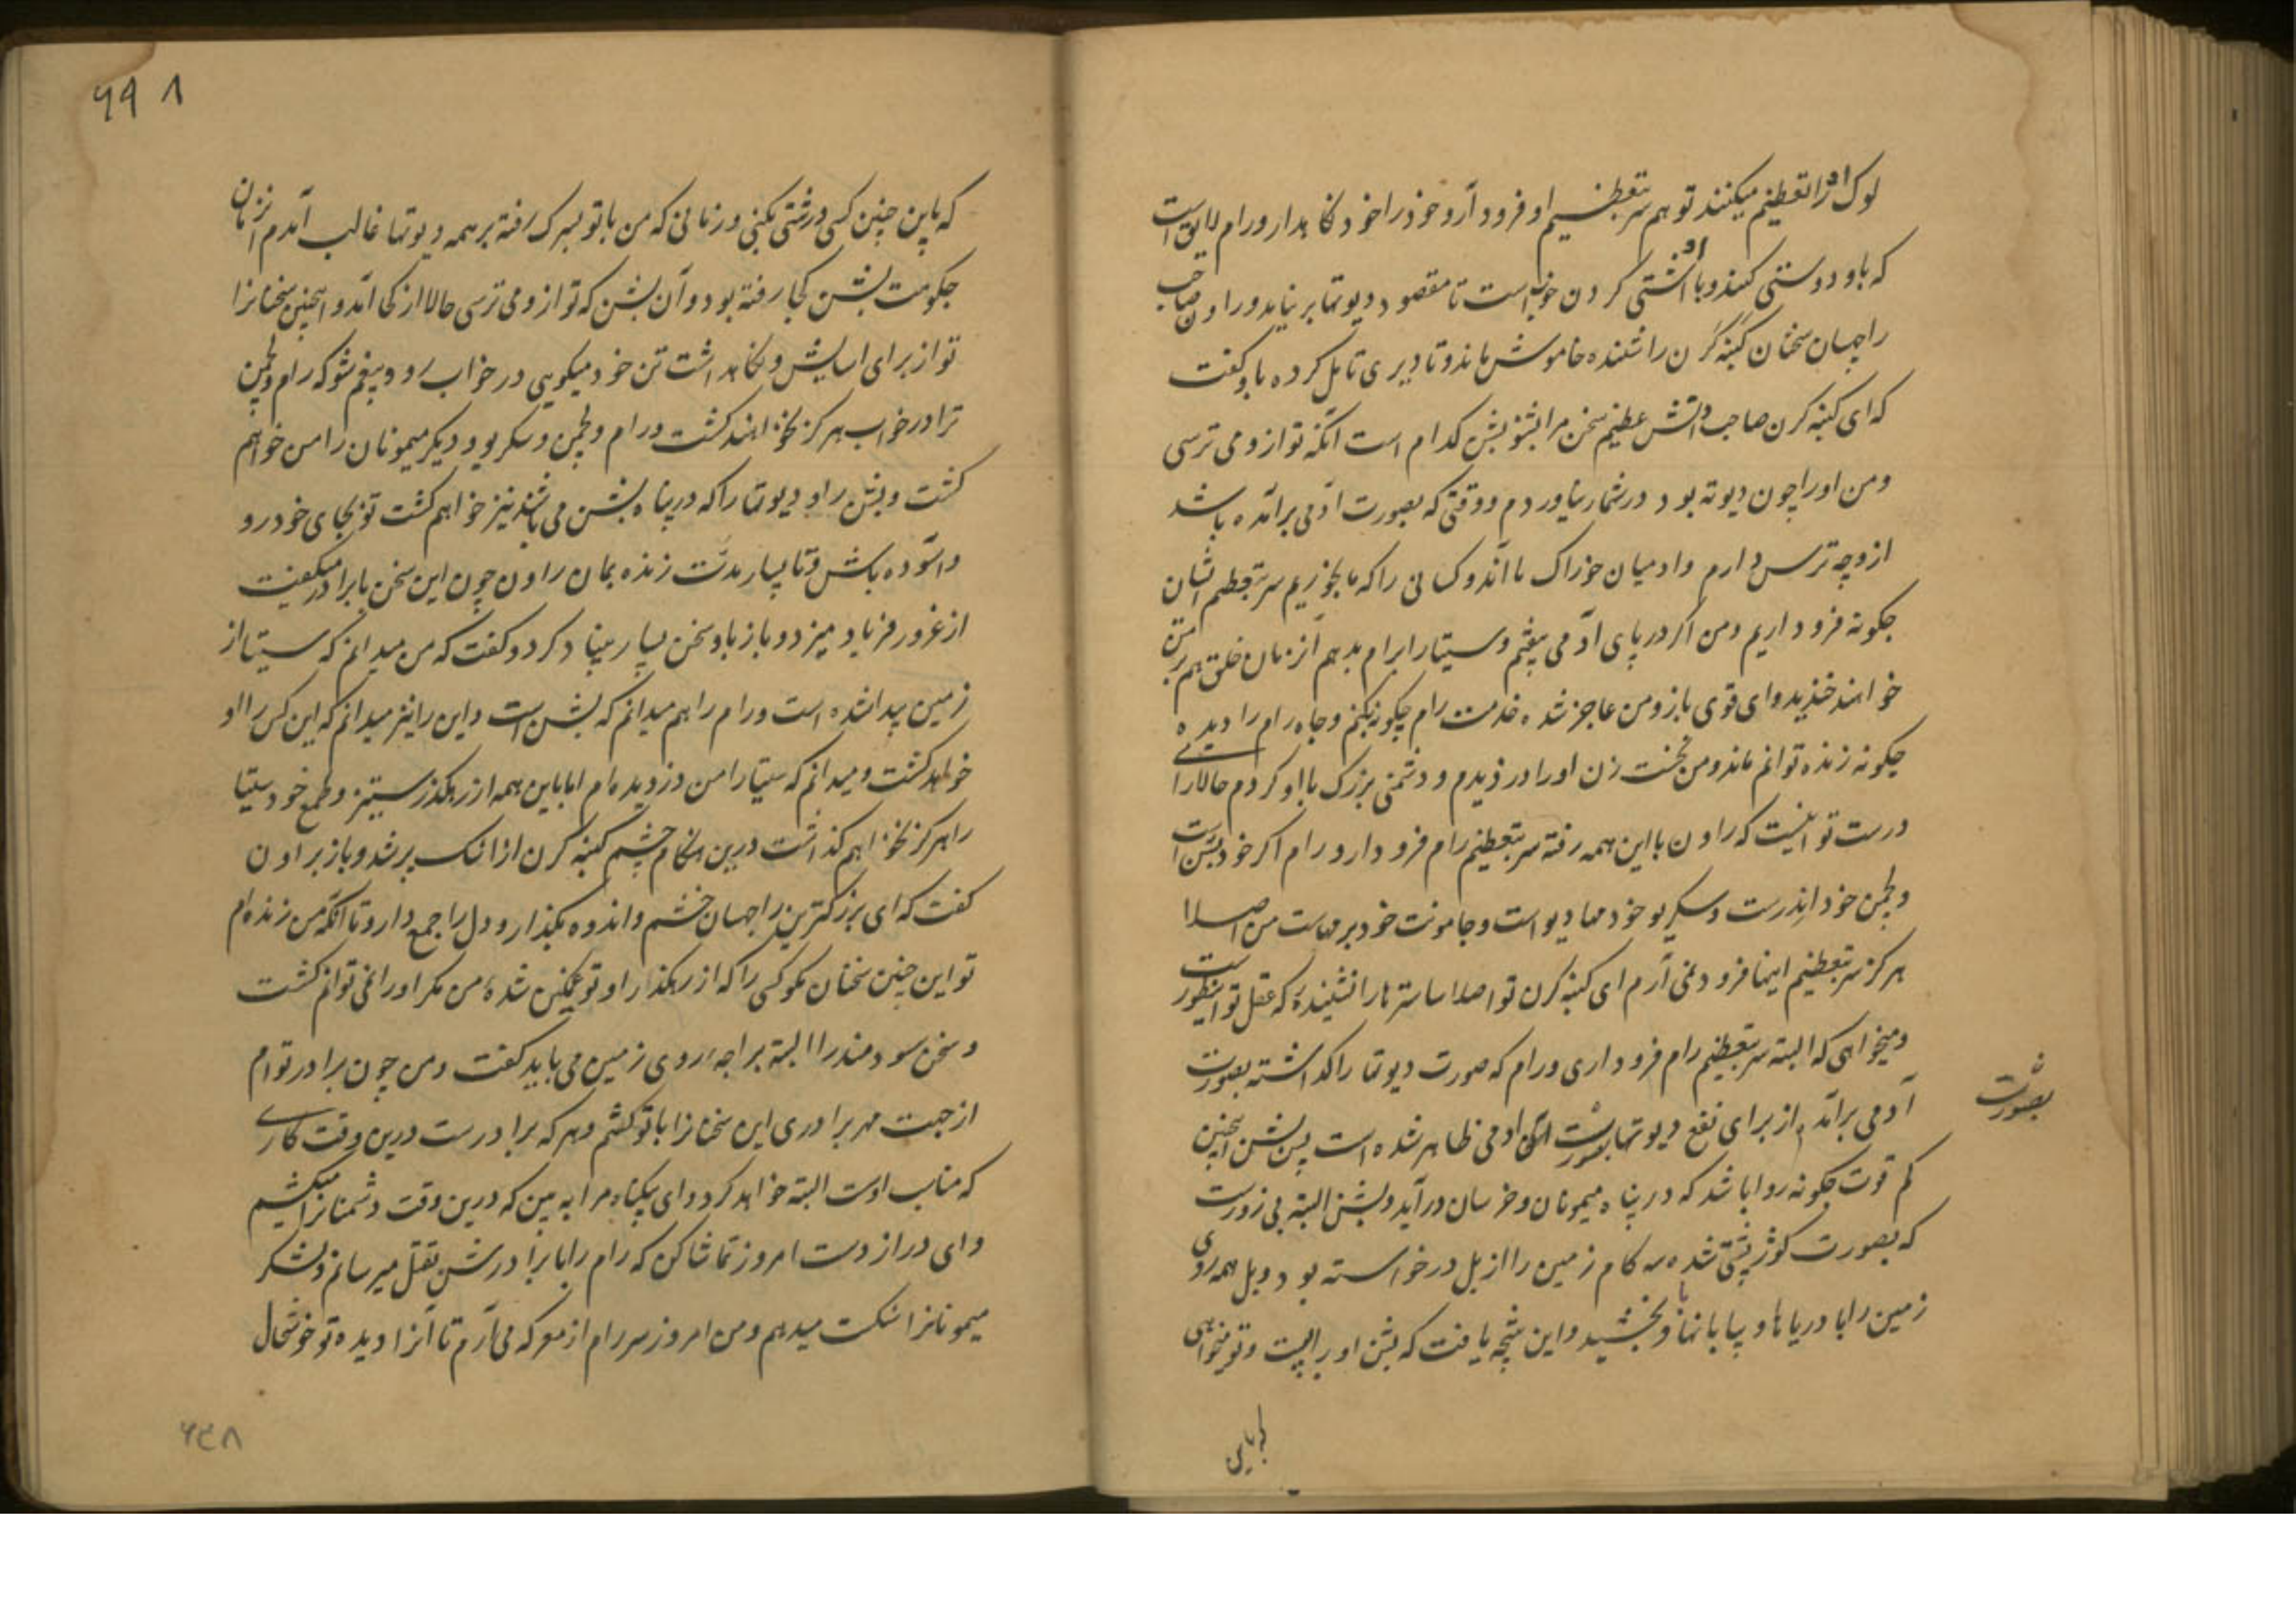 لوک او را تعظیم میکنند تو هم سر بتعظیم او فرود آر و خود را خود نگاهدار و رام لایق است
که باو دوستی کنند و با او آشتی کردن خوبست تا مقصود دیوتها برنیاید و راون صاحب
راجهان سخنان کنبه کرن را شنیده خاموش ماند و تا دیری تامل کرده باو گفت
که ای کنبه کرن صاحب دانش عظیم سخن مرا بشنو بشن کدام است آنکه تو ازو می ترسی
ومن او را چون دیوته بود در شمار نیاوردم و وقتی که بصورت آدمی برآمده باشد
ازو چه ترس دارم و ادمیان خوراک ما اند و کسانی را که ما بخوریم سر بتعظیم ایشان
چگونه فرود اریم ومن اگر در پای آدمی بیفتم وسیتا را برام بدهم آنزمان خلق همه بر من
خواهند خندید وای قوی بازو من عاجز شده خدمت رام چگونه بکنم و جاه رام را دیده
چگونه زنده توانم ماند ومن نخست زن او را دزدیدم و دشمنی بزرگ با او کردم حالا رای
درست تو اینست که راون با این همه رفته سر بتعظیم رام فرود دارد و رام اگر خود بشن است
و لچمن خود اندرست و سکریو خود مهادیو است و جامونت خود برهماست من اصلا
هرگز سر بتعظیم اینها فرود نمی آرم ای کنبه کرن تو اصلا ساسترها را نشنیده که عقل تو اینطورست
ومیخواهی که البته سر بتعظیم رام فرود اری و رام که صورت دیوتها را گذاشته بصورت
آدمی برآمده از برای نفع دیوتها بصورت آدمی ظاهر شده است پس بشن اینچنین
بصورت
کم قوت چگونه روا باشد که در پناه میمونان و خرسان در آید و بشن البته بی زورست
که بصورت کوژ پشتی شده سه کام زمین را از بل درخواسته بود و بل همه روی
زمین را با دریاها و بیابانها باو بخشید و این نتیجه یافت که بشن او را بست و تو میخواهی
که باین چنین کسی درشتی بکنی و زمانی که من با تو بسرک رفته بر همه دیوتها غالب آمدم آنزمان
حکومت بشن کجا رفته بود و آن بشن که تو ازو می ترسی حالا از کجا آمد و اینچنین سخنانرا
تو از برای اسایش و نگاهداشت تن خود میگویی در خواب رو و بیغم شو که رام و لچمن
ترا در خواب هرگز نخواهند کشت و رام و لچمن و سکریو و دیگر میمونان را من خواهم
کشت و بشن را و دیوتها را که در پناه بشن می باشند نیز خواهم کشت تو بجای خود رو
و اسوده باش و تا بسیار مدت زنده بمان راون چون این سخن با برادر میگفت
از غرور فریاد میزد و باز باو سخن بسیار بنیاد کرد و گفت که من میدانم که سیتا از
زمین پیدا شده است و رام را هم میدانم که بشن است و این را نیز میدانم که این کس را او
خواهد کشت و میدانم که سیتا را من دزدیده ام اما باین همه از رهگذر ستیز و طمع خود سیتا
را هرگز نخواهم گذاشت درین هنگام چشم کنبه کرن از اشک پر شد و باز براون
گفت که ای بزرگترین راجهان خشم و اندوه بگذار و دل را جمع دار و تا آنکه من زنده ام
تو این چنین سخنان مگو کسی را که از رهگذار او تو غمگین شدهٔ من مگر او را نمی توانم کشت
و سخن سودمند را البته براجه روی زمین می باید گفت و من چون برادر توام
از جهت مهر برادری این سخنانرا با تو گفتم و هر که برادرست درین وقت کاری
که مناسب اوست البته خواهد کرد و ای بیگناه مرا به بین که درین وقت دشمنانرا میکشم
و ای دراز دست امروز تماشا کن که رام را با برادرش بقتل میرسانم و لشکر
میمونانرا شکست میدهم و من امروز سر رام از معرکه می آرم تا آنرا دیده تو خوشحال
۶۳۸